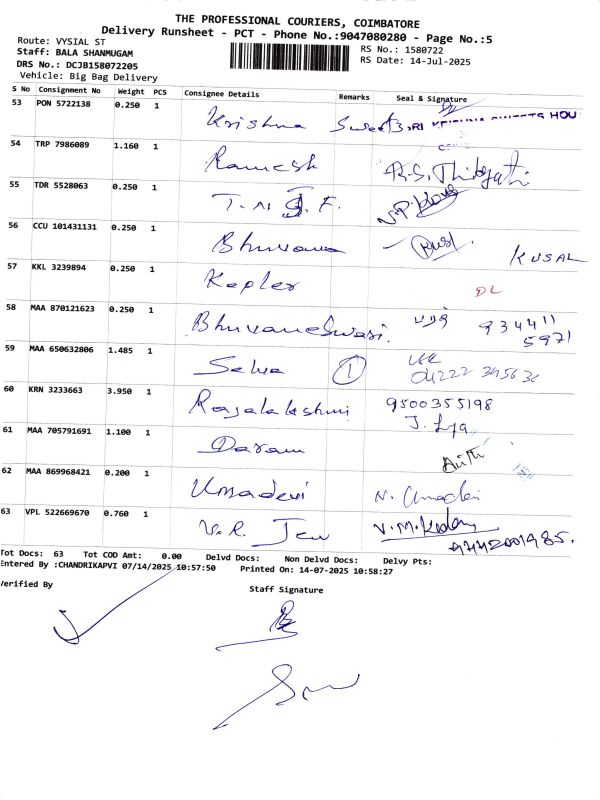 THE PROFESSIONAL COURIERS, COIMBATORE
Delivery Runsheet - PCT - Phone No.:9047080280 - Page No.:5
Route: VYSIAL ST
RS No.: 1580722
Staff: BALA SHANMUGAM
RS Date: 14-Jul-2025
DRS No.: DCJB158072205
Vehicle: Big Bag Delivery
S No Consignment No Weight PCS Consignee Details Remarks Seal & Signature
53 PON 5722138 0.250 1 Krishna Sweets
54 TRP 7986089 1.160 1 Ramesh
55 TDR 5528063 0.250 1
56 CCU 101431131 0.250 1 Bhuvana KUSAL
57 KKL 3239894 0.250 1 Kepler DL
58 MAA 870121623 0.250 1 Bhuvaneswari 934411
5971
59 MAA 650632806 1.485 1 Selva 1
60 KRN 3233663 3.950 1 Rajalakshmi 9500355198
61 MAA 705791691 1.100 1
62 MAA 869968421 0.200 1 Umadevi
63 VPL 522669670 0.760 1 V.R.
9442001985.
Tot Docs: 63 Tot COD Amt: 0.00 Delvd Docs: Non Delvd Docs: Delvy Pts:
Entered By :CHANDRIKAPVI 07/14/2025 10:57:50 Printed On: 14-07-2025 10:58:27
Verified By
Staff Signature